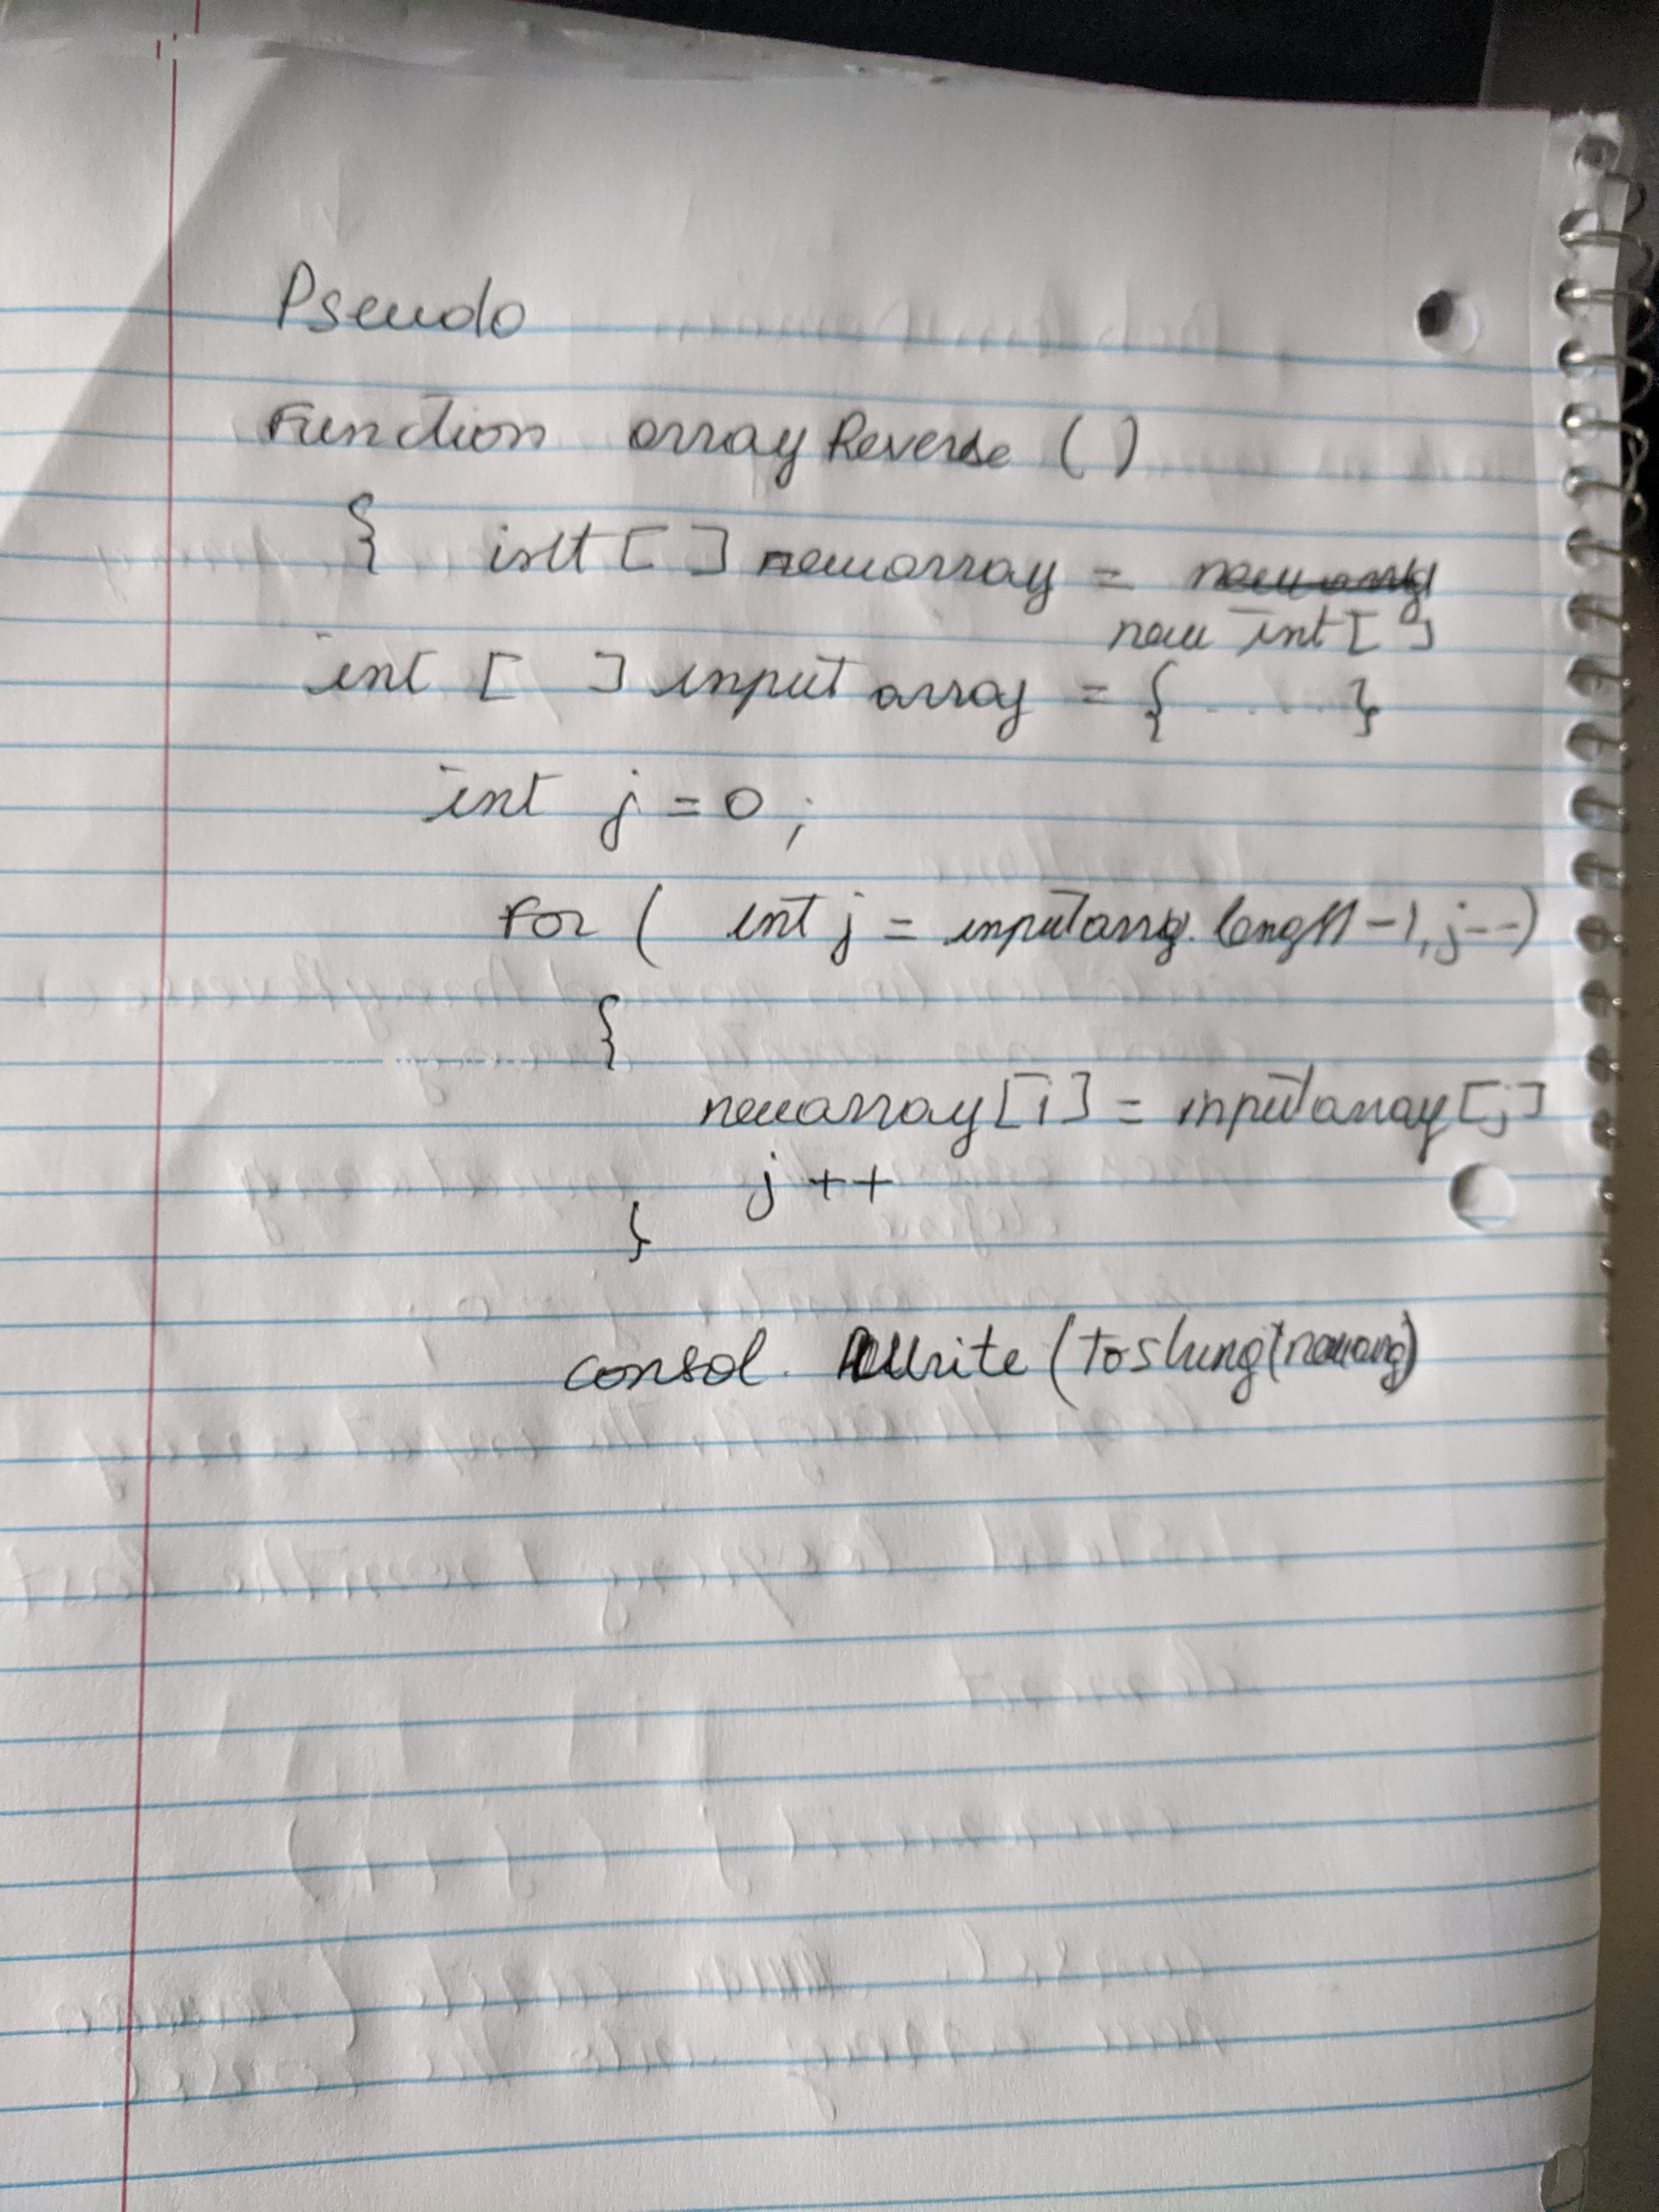 Pseudo
Function arrayReverse ( )
{ int [ ] newarray =
new int [ ]
int [ ] input array = { ..... }
int j = 0 ;
For ( int j = inputarray. length - 1, j-- )
{
newarray [i] = inputarray [j]
j ++
}
consol. Write (ToString(newarray)